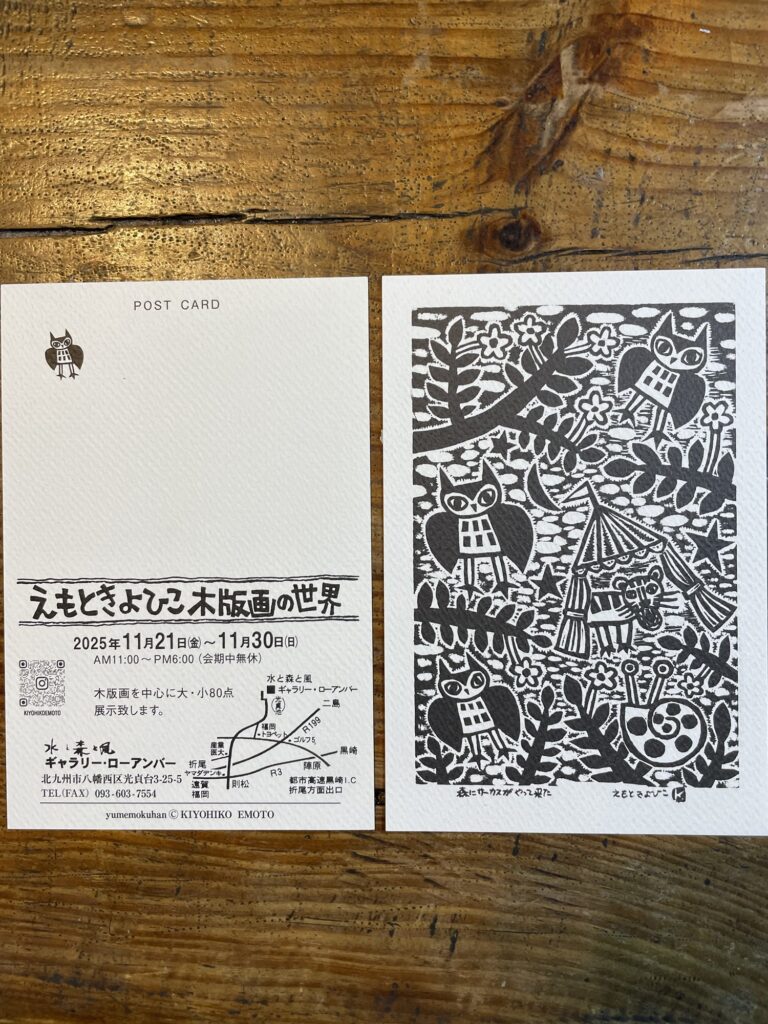 POST CARD
えもときよひこ木版画の世界
2025年11月21日(金)～11月30日(日)
AM11:00～PM6:00(会期中無休)
KIYOHIKOEMOTO
木版画を中心に大・小80点
展示致します。
水と森と風
ギャラリー・ローアンバー
北九州市八幡西区光貞台3-25-5
TEL(FAX) 093-603-7554
水と森と風
ギャラリー・ローアンバー
二島
福岡
トヨペット
R199
ゴルフ5
産業
医大
折尾
ヤマダデンキ
黒崎
陣原
R3
遠賀
福岡
則松
都市高速黒崎I.C
折尾方面出口
yumemokuhan © KIYOHIKO EMOTO
森にサーカスがやって来た
えもときよひこ